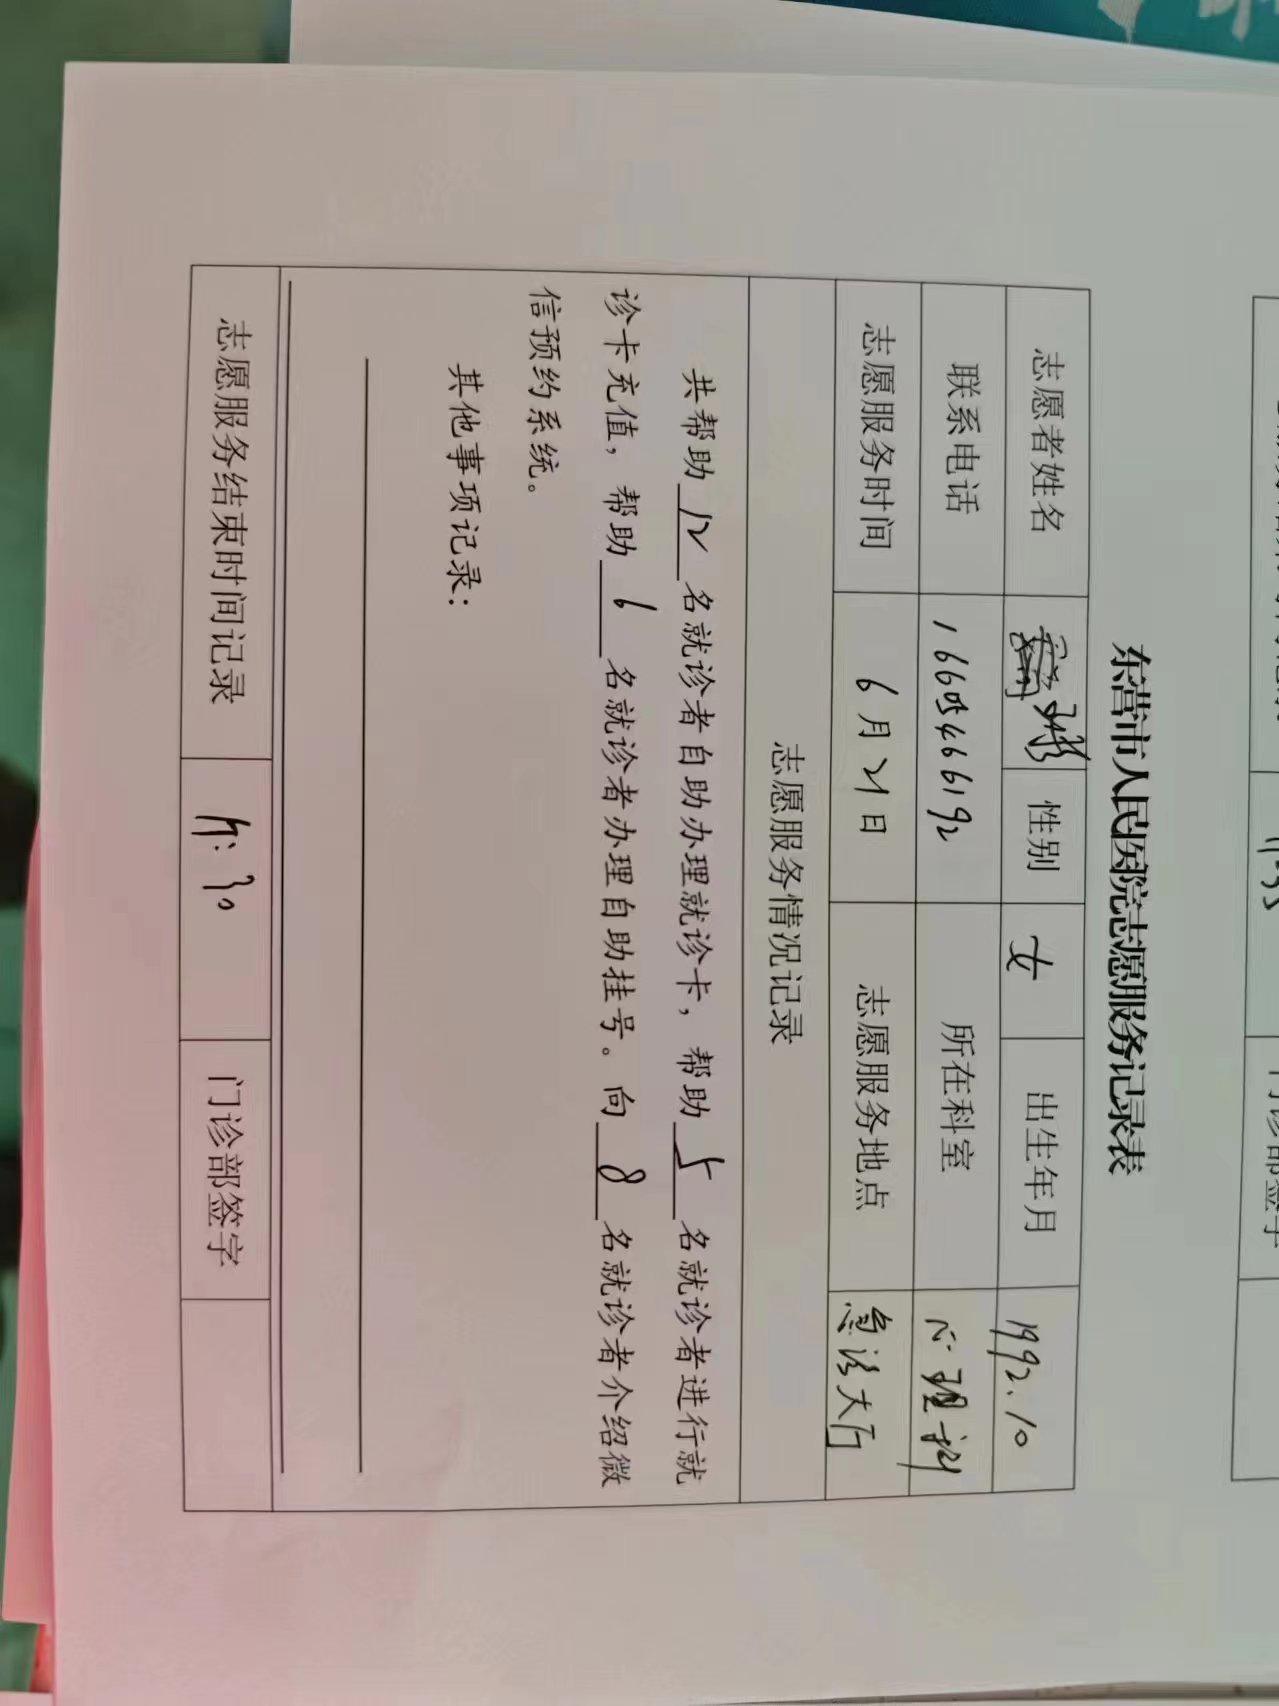 东营市人民医院志愿服务记录表
志愿者姓名 性别 女 出生年月 1992.10
联系电话 16605466192 所在科室 心理科
志愿服务时间 6月21日 志愿服务地点 急诊大厅
志愿服务情况记录
共帮助12名就诊者自助办理就诊卡，帮助5名就诊者进行就
诊卡充值，帮助6名就诊者办理自助挂号。向8名就诊者介绍微
信预约系统。
其他事项记录：
志愿服务结束时间记录 11:30 门诊部签字